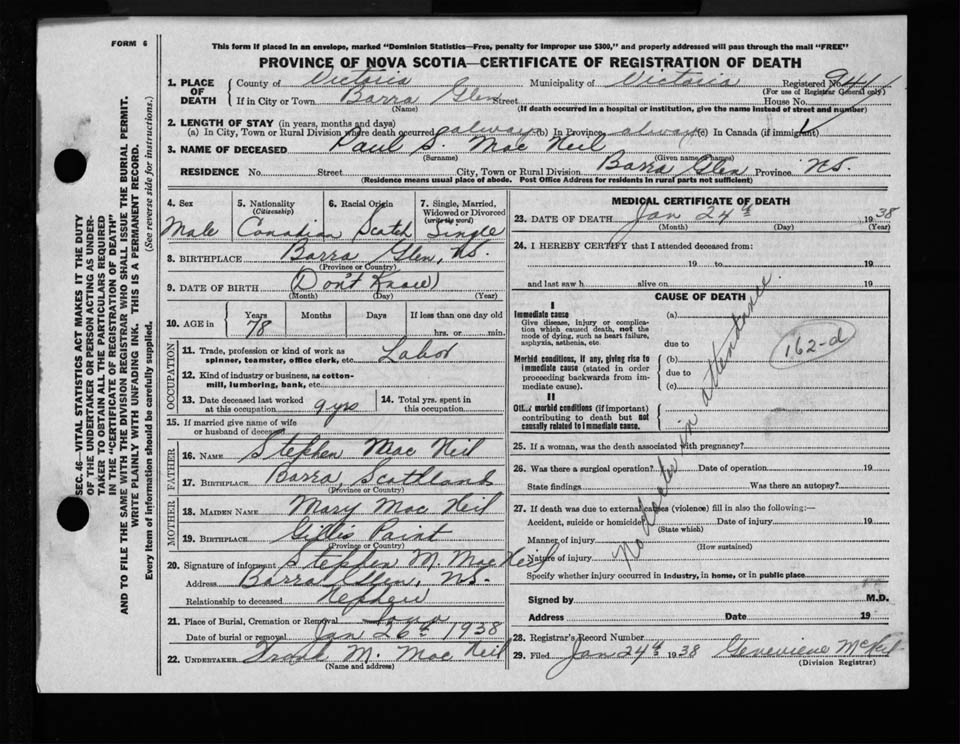 FORM 6
This form if placed in an envelope, marked "Dominion Statistics—Free, penalty for improper use $300," and properly addressed will pass through the mail "FREE"
PROVINCE OF NOVA SCOTIA—CERTIFICATE OF REGISTRATION OF DEATH
1. PLACE OF DEATH
County of Victoria Municipality of Victoria Registered No. 944
(For use of Registrar General only)
If in City or Town Barra Glen Street House No.
(Name) (If death occurred in a hospital or institution, give the name instead of street and number)
2. LENGTH OF STAY (in years, months and days)
(a) In City, Town or Rural Division where death occurred always (b) In Province always (c) In Canada (if immigrant)
3. NAME OF DECEASED Paul S. Mac Neil
(Surname) (Given name or names)
RESIDENCE No. Street City, Town or Rural Division Barra Glen Province N.S.
(Residence means usual place of abode. Post Office Address for residents in rural parts not sufficient)
4. Sex 5. Nationality (Citizenship) 6. Racial Origin 7. Single, Married, Widowed or Divorced (write the word)
Male Canadian Scotch Single
8. BIRTHPLACE Barra Glen, N.S.
(Province or Country)
9. DATE OF BIRTH (Don't Know)
(Month) (Day) (Year)
10. AGE in Years Months Days If less than one day old
78 hrs. or min.
OCCUPATION
11. Trade, profession or kind of work as spinner, teamster, office clerk, etc. Labor
12. Kind of industry or business, as cotton-mill, lumbering, bank, etc.
13. Date deceased last worked at this occupation 9 yrs 14. Total yrs. spent in this occupation
15. If married give name of wife or husband of deceased
FATHER
16. NAME Stephen Mac Neil
17. BIRTHPLACE Barra, Scothland
(Province or Country)
MOTHER
18. MAIDEN NAME Mary Mac Neil
19. BIRTHPLACE Gillis Point
(Province or Country)
20. Signature of informant Stephen M. Mac Neil
Address Barra Glen, N.S.
Relationship to deceased Nephew
21. Place of Burial, Cremation or Removal
Date of burial or removal Jan 26th 1938
22. UNDERTAKER M. Mac Neil
(Name and address)
MEDICAL CERTIFICATE OF DEATH
23. DATE OF DEATH Jan 24th 1938
(Month) (Day) (Year)
24. I HEREBY CERTIFY that I attended deceased from:
19 to 19
and last saw h alive on 19
CAUSE OF DEATH
I
Immediate cause (a)
Give disease, injury or complication which caused death, not the mode of dying, such as heart failure, asphyxia, asthenia, etc.
due to
162-d
Morbid conditions, if any, giving rise to immediate cause (stated in order proceeding backwards from immediate cause).
(b)
due to
(c)
II
Other morbid conditions (if important) contributing to death but not causally related to immediate cause.
No Doctor in attentance.
25. If a woman, was the death associated with pregnancy?
26. Was there a surgical operation? Date of operation 19
State findings Was there an autopsy?
27. If death was due to external causes (violence) fill in also the following:—
Accident, suicide or homicide? Date of injury 19
(State which)
Manner of injury
(How sustained)
Nature of injury
Specify whether injury occurred in industry, in home, or in public place
Signed by M.D.
Address Date 19
28. Registrar's Record Number
29. Filed Jan 24th 1938 Genevieve McNeil
(Division Registrar)
SEC. 46—VITAL STATISTICS ACT MAKES IT THE DUTY
OF THE UNDERTAKER OR PERSON ACTING AS UNDER-
TAKER TO OBTAIN ALL THE PARTICULARS REQUIRED
IN THE "CERTIFICATE OF REGISTRATION OF DEATH"
AND TO FILE THE SAME WITH THE DIVISION REGISTRAR WHO SHALL ISSUE THE BURIAL PERMIT.
WRITE PLAINLY WITH UNFADING INK. THIS IS A PERMANENT RECORD.
Every item of information should be carefully supplied. (See reverse side for instructions.)